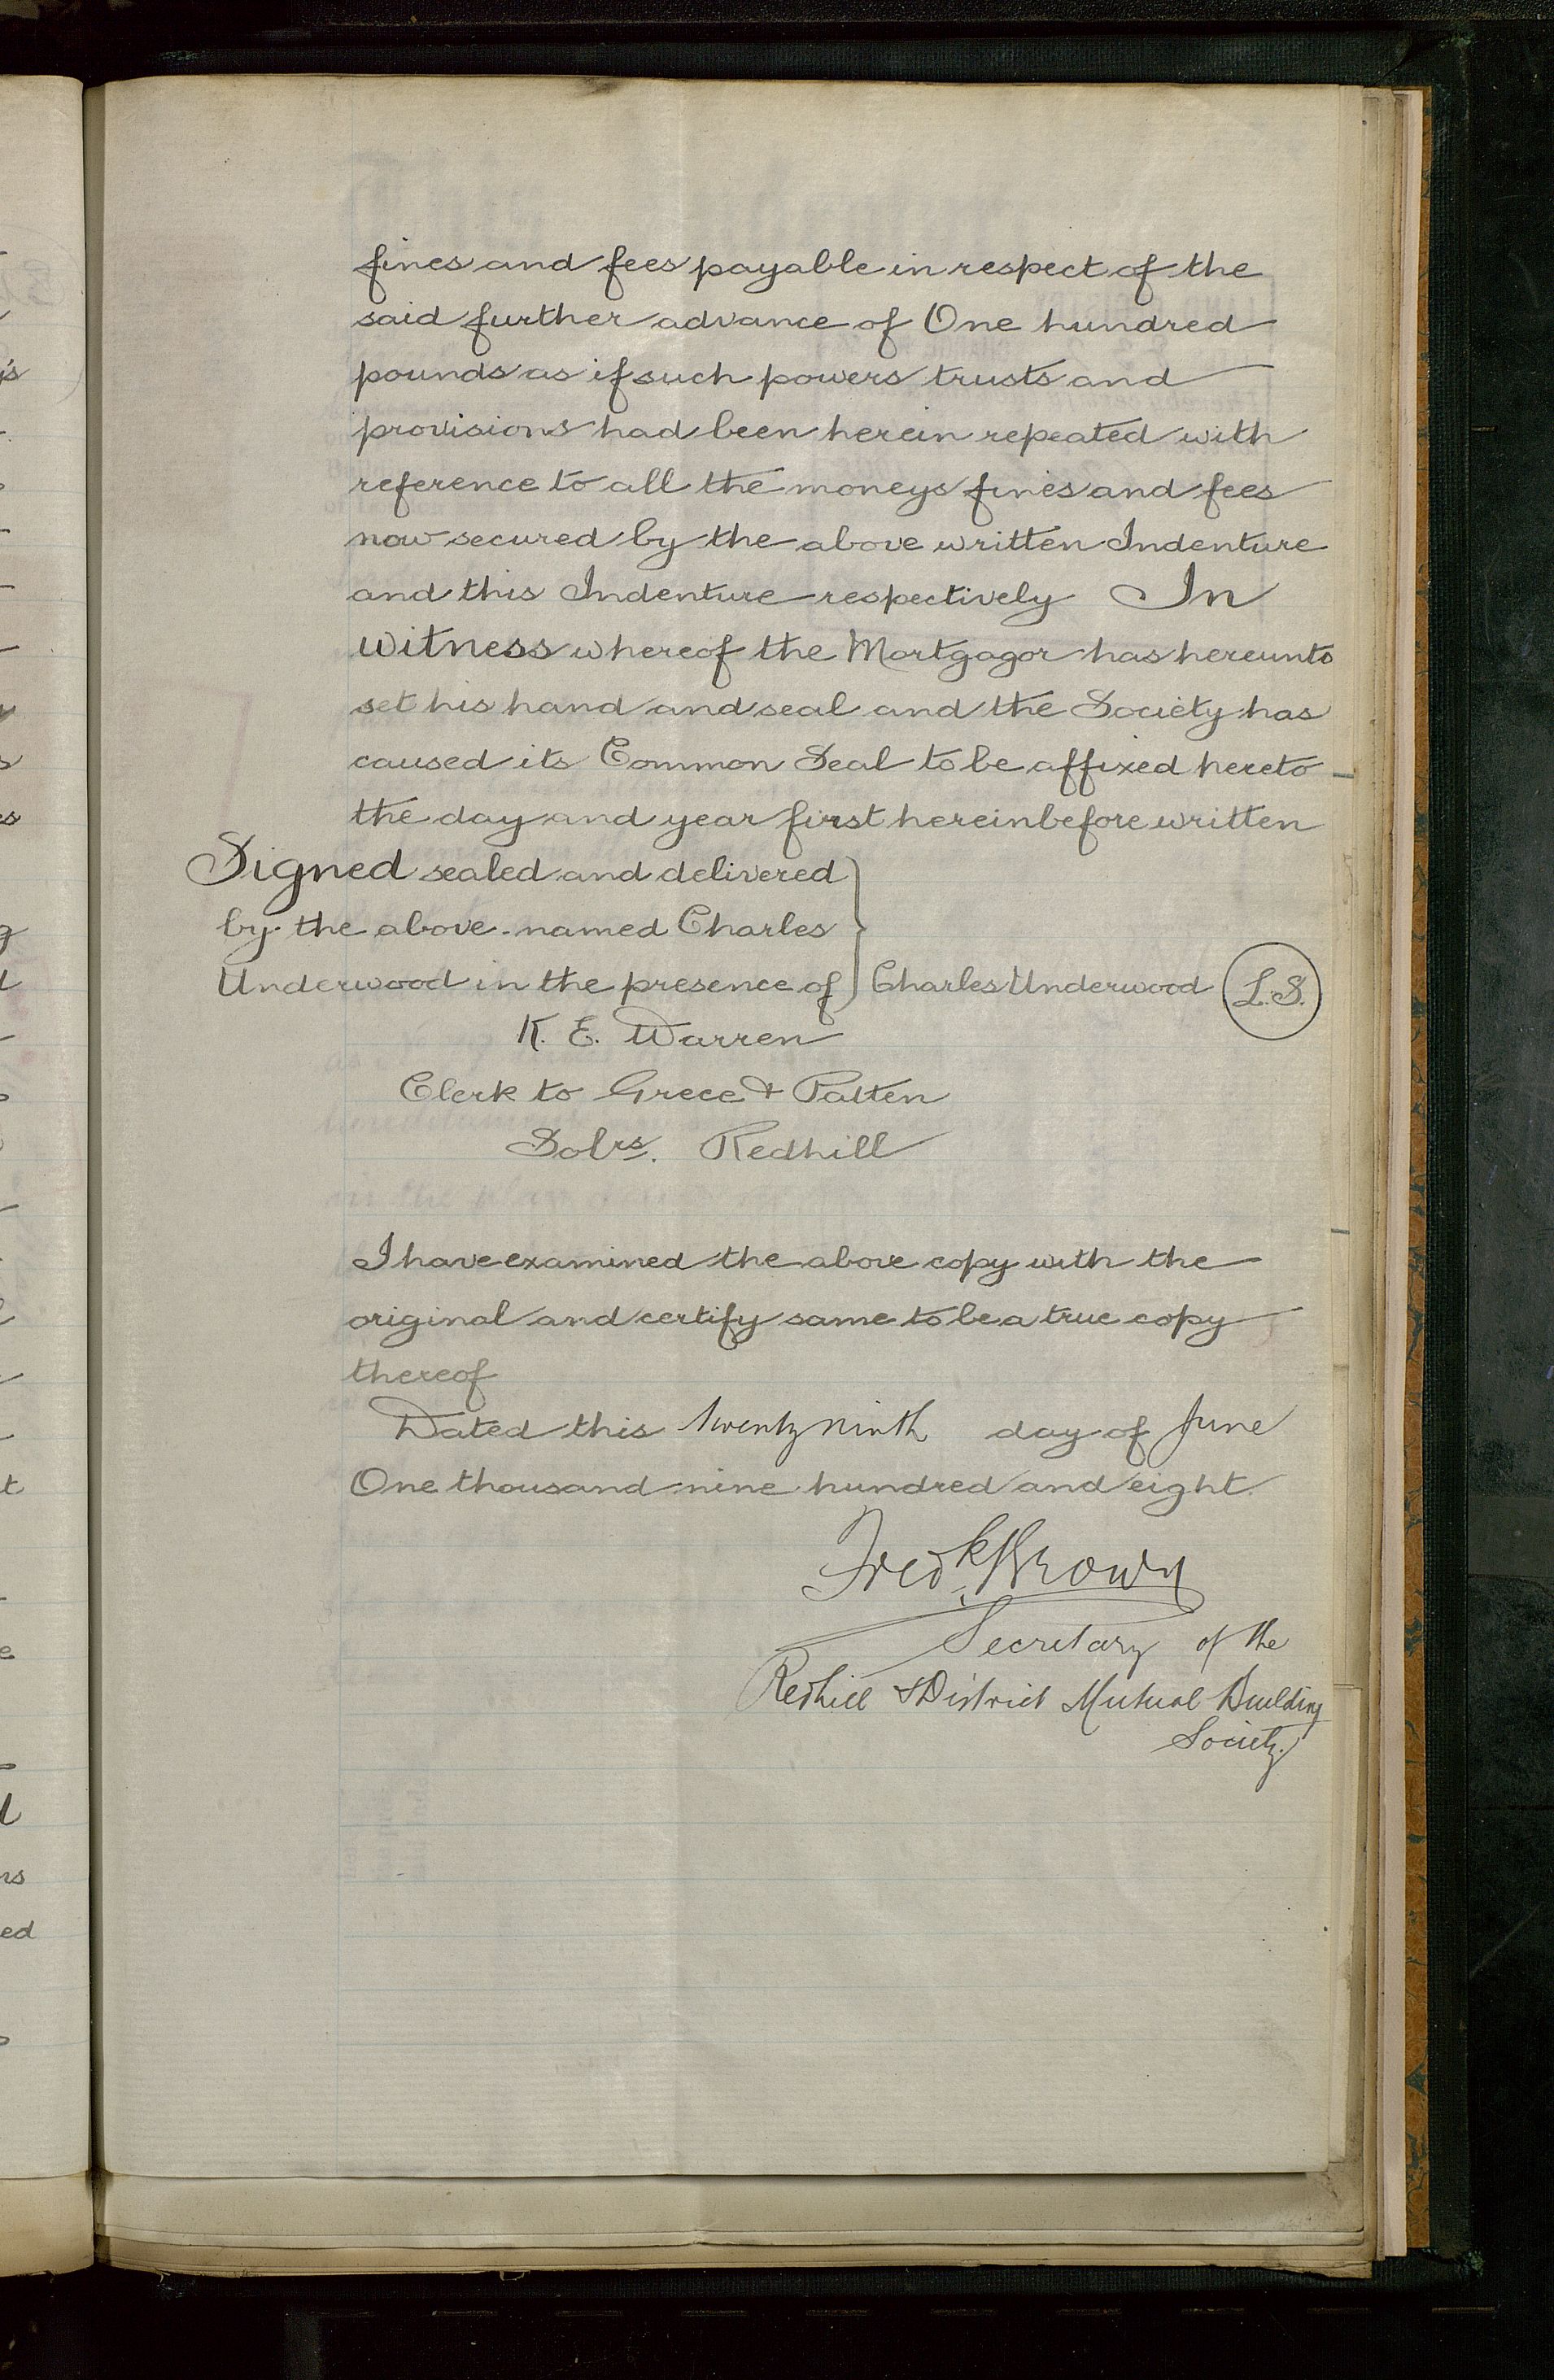 fines and fees payable in respect of the
said further advance of One hundred
pounds as if such powers trusts and
provisions had been herein repeated with
reference to all the moneys fines and fees
now secured by the above written Indenture
and this Indenture respectively In
witness whereof the Mortgagor has hereunto
set his hand and seal and the Society has
caused its Common Seal to be affixed hereto
the day and year first hereinbefore written
Signed sealed and delivered
by the above-named Charles
Underwood in the presence of Charles Underwood L.S.
K. E. Warren
Clerk to Grece & Patten
Solrs. Redhill
I have examined the above copy with the
original and certify same to be a true copy
thereof
Dated this twenty ninth day of June
One thousand nine hundred and eight.
Fredk Brown
Secretary of the
Redhill & District Mutual Building
Society.